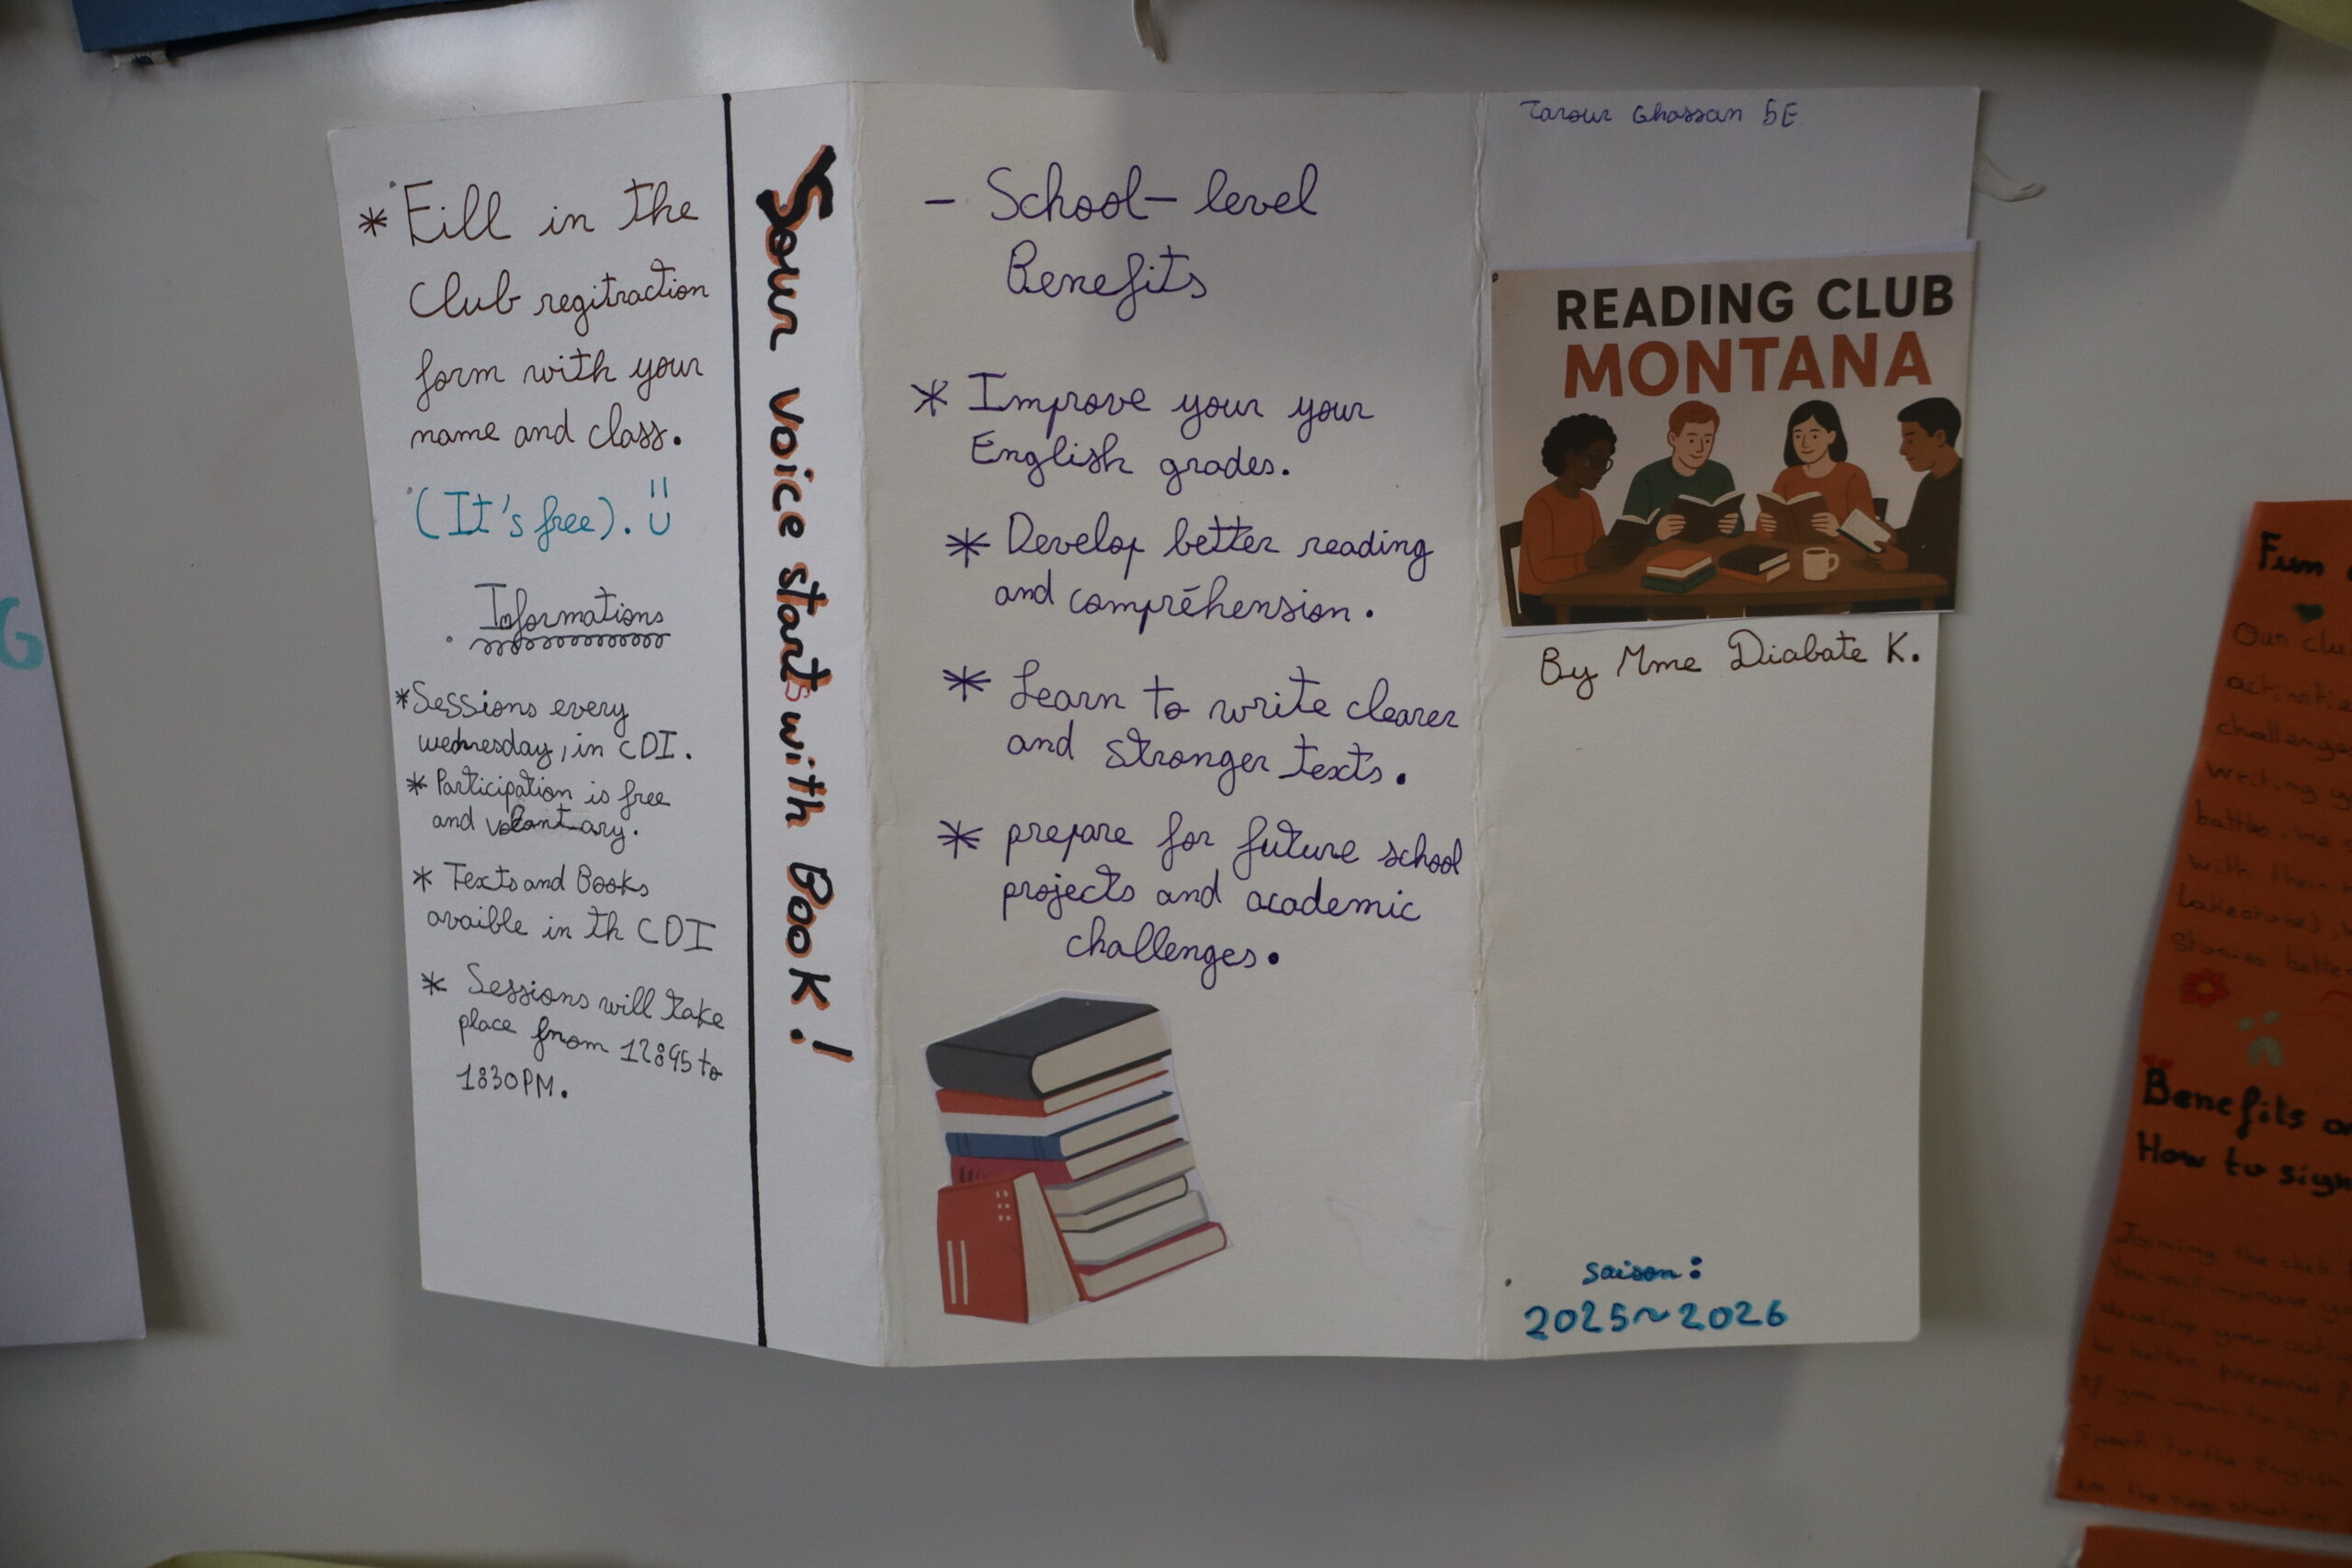 * Fill in the
Club regitraction
form with your
name and class.
(It's free).
Informations
* Sessions every
wednesday, in CDI.
* Participation is free
and volontary.
* Texts and Books
avaible in th CDI
* Sessions will take
place from 12:45 to
1830PM.
Your voice starts with Book!
- School-level
Benefits
* Improve your your
English grades.
* Develop better reading
and compréhension.
* Learn to write clearer
and stronger texts.
* prepare for future school
projects and academic
challenges.
Tarour Ghassan 5E
READING CLUB
MONTANA
By Mme Diabate K.
saison:
2025~2026
Fun
Our clu
challenge
writing
with them
Benefits
How to sign
Joining the club